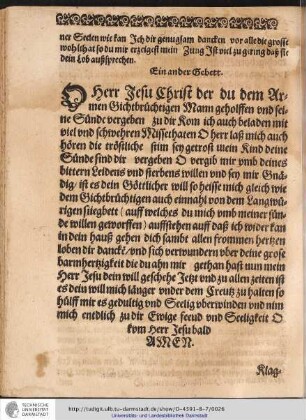 ner Seelen wie kan Ich dir genugsam dancken vor alle die grosse
wohlthat so du mir erzeigest mein Zung Ist viel zu gering daß sie
dein Lob außsprechen.
Ein ander Gebett.
O Herr Jesu Christ der du dem Ar-
men Gichtbrüchtigen Mann geholffen vnd sei-
ne Sünd vergeben zu dir Kom ich auch beladen mit
viel vnd schwehren Missethaten O herr laß mich auch
hören die tröstliche stim sey getrost mein Kind deine
Sünde sind dir vergeben O vergib mir vmb deines
bittern Leidens vnd sterbens willen vnd sey mir Gnä-
dig / ist es dein Göttlicher will so heisse mich gleich wie
dem Gichtbrüchtigen auch einmahl von dem Langwü-
rigen siegbett (auff welches du mich vmb meiner sün-
de willen geworffen) auffstehen auff daß ich wider kan
in dein hauß gehen dich sambt allen frommen hertzen
loben dir danckē vnd sich verwundern vber deine grose
barmhertzigkeit die du ahn mir gethan hast nun mein
Herr Jesu dein will geschehe Jetz vnd zu allen zeiten ist
es dein will mich länger vnder dem Creutz zu halten so
hülff mir es gedultig vnd Seelig vberwinden vnd nim
mich endlich zu dir Ewige freud vnd Seeligkeit O
kom Herr Jesu bald
AMEN.
Klag-
TECHNISCHE
UNIVERSITÄT
DARMSTADT
http://tudigit.ulb.tu-darmstadt.de/show/O-4591-8-7/0026
Universitäts- und Landesbibliothek Darmstadt